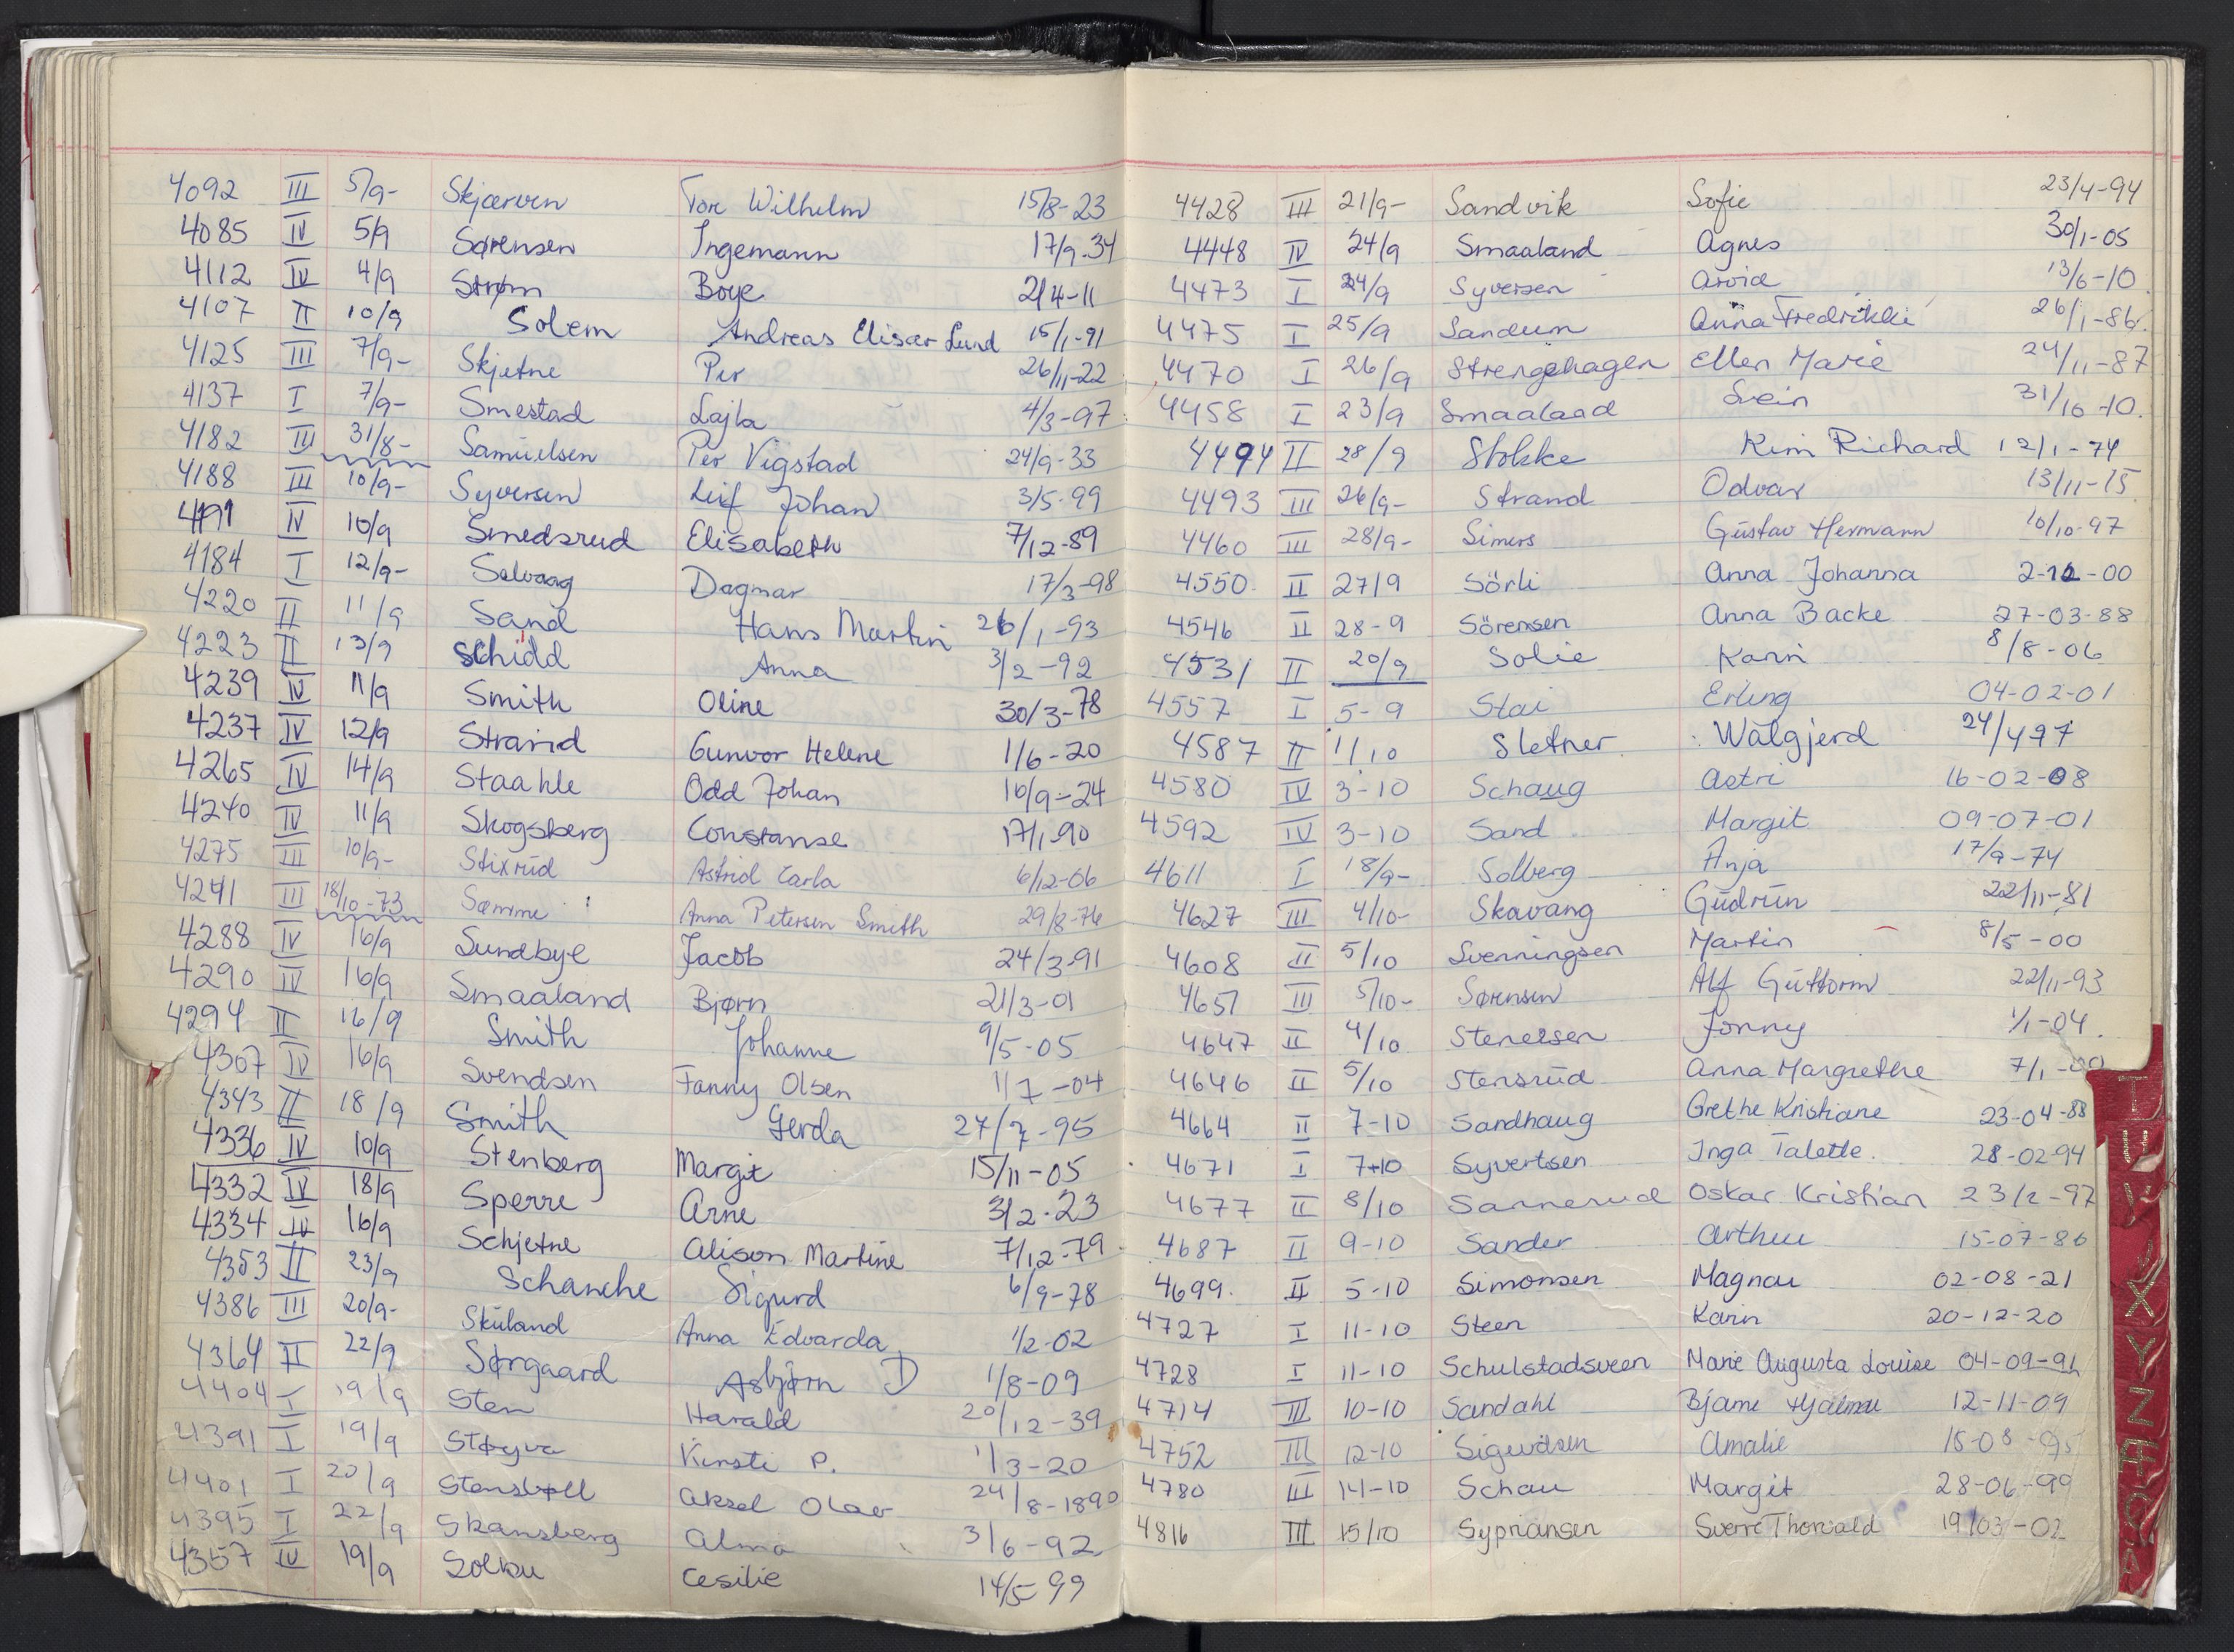 4092 III 5/9- Skjærven Tor Wilhelm 15/8-23
4085 IV 5/9 Sørensen Ingemann 17/9-34
4112 IV 4/9 Strøm Boye 2/4-11
4107 II 10/9 Solem Andreas Elisar Lund 15/1-91
4125 III 7/9- Skjetne Per 26/11-22
4137 I 7/9- Smestad Lajla 4/3-97
4182 III 31/8- Samuelsen Per Vigstad 24/9-33
4188 III 10/9- Syversen Leif Johan 3/5-99
4191 IV 10/9 Smedsrud Elisabeth 7/12-89
4184 I 12/9- Solvaag Dagmar 17/3-98
4220 II 11/9 Sand Hans Martin 26/1-93
4223 II 13/9 Schidd Anna 3/2-92
4239 IV 11/9 Smith Oline 30/3-78
4237 IV 12/9 Strand Gunvor Helene 1/6-20
4265 IV 14/9 Staahle Odd Johan 16/9-24
4240 IV 11/9 Skogsberg Constanse 17/1-90
4275 III 10/9- Stixrud Astrid Carla 6/12-06
4241 III 18/10-73 Sømme Anna Petersen Smith 29/8-76
4288 IV 16/9 Sundbye Jacob 24/3-91
4290 IV 16/9 Smaaland Bjørn 21/3-01
4294 II 16/9 Smith Johanne 9/5-05
4307 IV 16/9 Svendsen Fanny Olsen 1/7-04
4343 II 18/9 Smith Gerda 27/7-95
4336 IV 10/9 Stenberg Margit 15/11-05
4332 IV 18/9 Sperre Arne 3/2-23
4334 IV 16/9 Schjetne Alison Martine 7/12-79
4353 II 23/9 Schanche Sigurd 6/9-78
4386 III 20/9- Skuland Anna Edvarda 1/2-02
4364 II 22/9 Sørgaard Asbjørn D 1/8-09
4404 I 19/9 Sten Harald 20/12-39
4391 I 19/9 Støyva Kirsti P. 1/3-20
4401 I 20/9 Stensbøll Aksel Olav 24/8-1890
4395 I 22/9 Skansberg Alma 3/6-92
4357 IV 19/9 Solbu Cesilie 14/5-99
4428 III 21/9- Sandvik Sofie 23/4-94
4448 IV 24/9 Smaaland Agnes 30/1-05
4473 I 24/9 Syversen Arvid 13/6-10
4475 I 25/9 Sandum Anna Fredrikke 26/1-86
4470 I 26/9 Strengehagen Ellen Marie 24/11-87
4458 I 23/9 Smaaland Svein 31/10-10.
4494 II 28/9 Stokke Kim Richard 12/1-74
4493 III 26/9- Strand Odvar 13/11-15
4460 III 28/9- Simers Gustav Hermann 10/10-97
4550 II 27/9 Sörli Anna Johanna 2-12-00
4546 II 28-9 Sörensen Anna Backe 27-03-88
4531 II 20/9 Solie Karin 8/8-06
4557 I 5-9 Stai Erling 04-02-01
4587 II 1/10 Sletner Walgjerd 24/4 97
4580 IV 3-10 Schaug Astri 16-02-08
4592 IV 3-10 Sand Margit 09-07-01
4611 I 18/9- Solberg Anja 17/9-74
4627 III 4/10- Skavang Gudrun 22/11-81
4608 II 5/10 Svenningsen Martin 8/5-00
4651 III 5/10- Sørensen Alf Guttorm 22/11-93
4647 II 4/10 Stenersen Jonny 1/1-04.
4646 II 5/10 Stensrud Anna Margrethe 7/1-00
4664 II 7-10 Sandhaug Grethe Kristiane 23-04-88
4671 I 7-10 Syvertsen Inga Talette. 28-02-94
4677 II 8/10 Sannerud Oskar Kristian 23/2-97
4687 II 9-10 Sander Arthur 15-07-86
4699. II 5-10 Simonsen Magnar 02-08-21
4727 I 11-10 Steen Karin 20-12-20
4728 I 11-10 Schulstadsveen Marie Augusta Louise 04-09-91
4714 III 10-10 Sandahl Bjarne Hjalmar 12-11-09
4752 III 12-10 Sigurdsen Amalie 15-08-95
4780 III 14-10 Schau Margit 28-06-99
4816 III 15/10 Sypriansen Sverre Thorvald 19/03-02
X
Y
Z
Æ
Ø